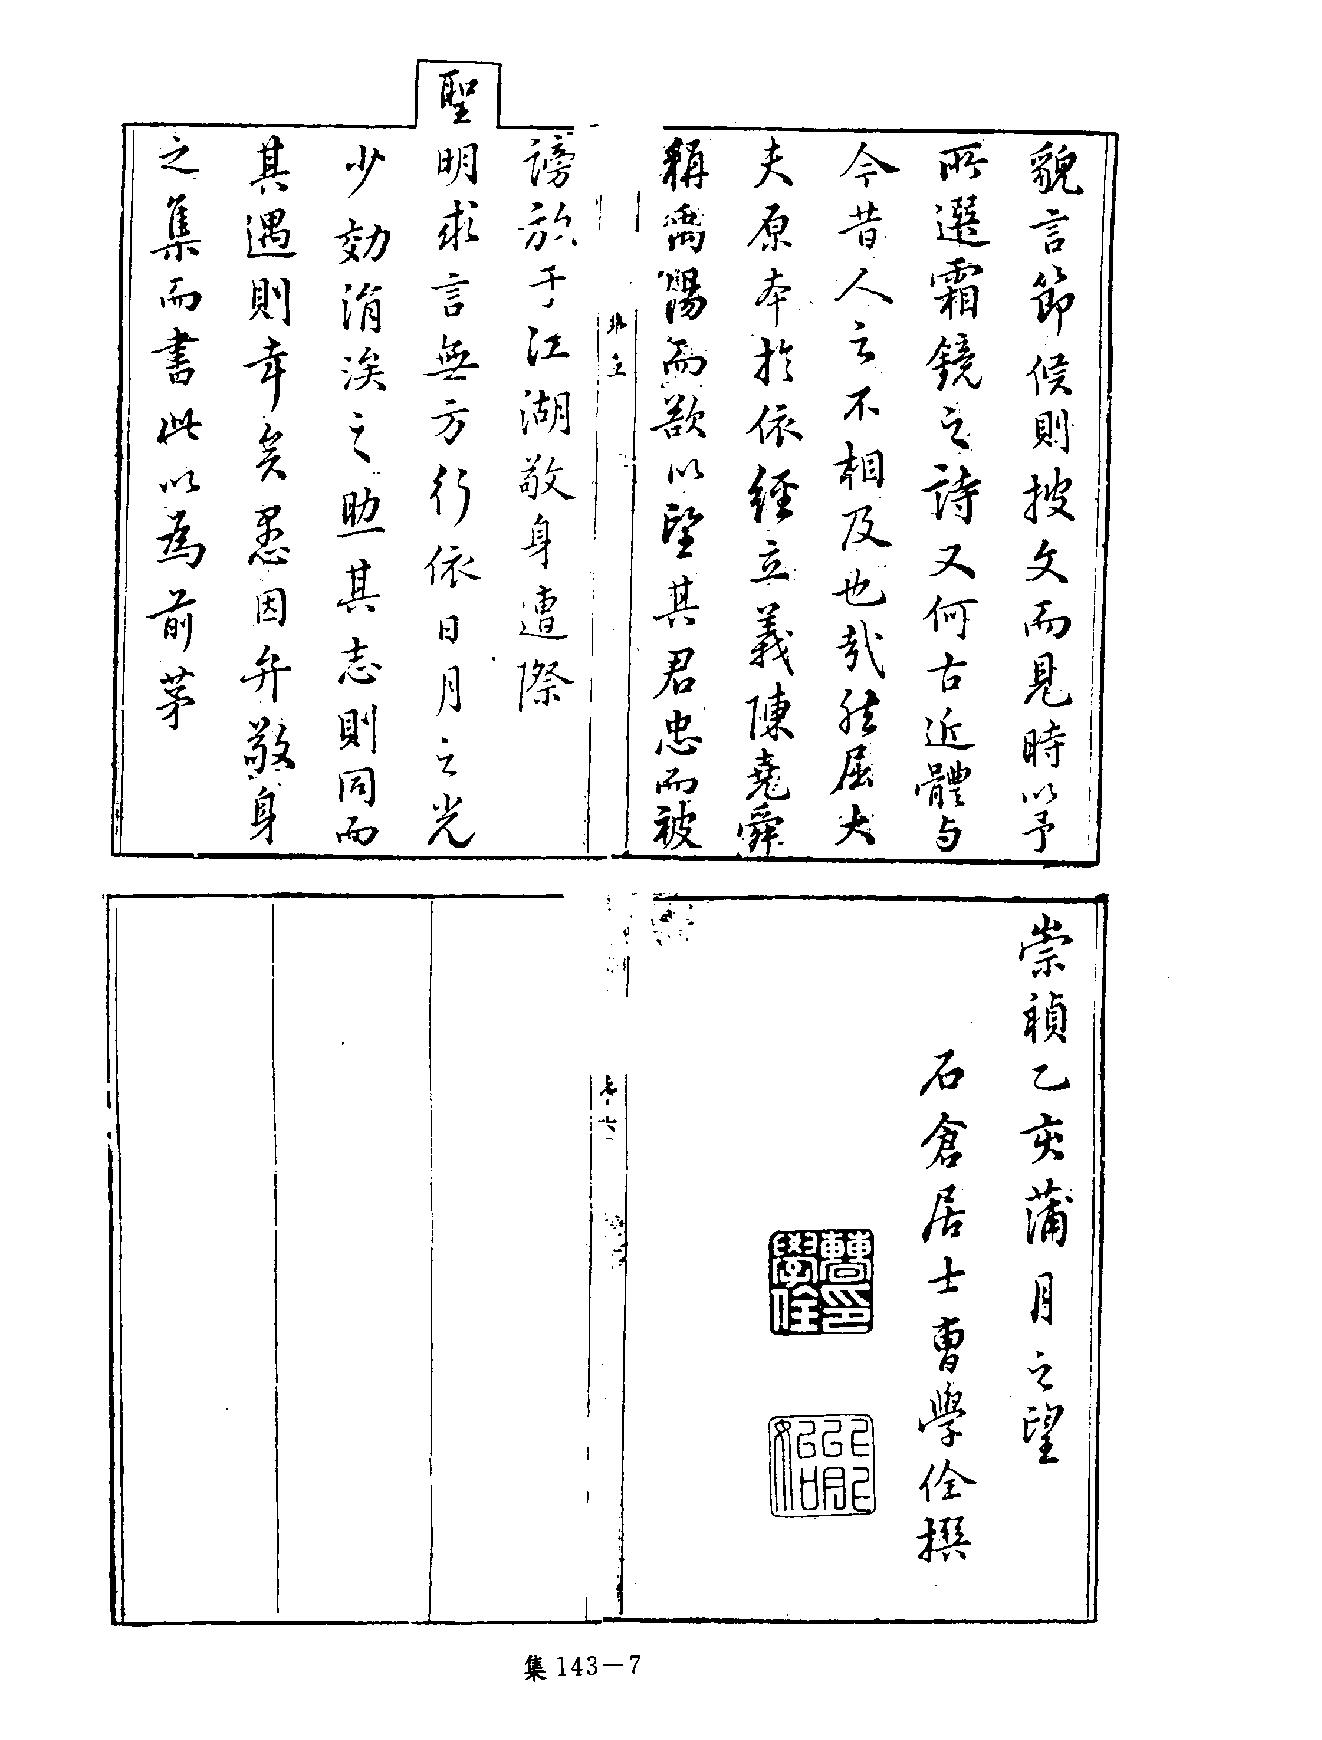 貌言節候則披文而見時以予
所選霜鏡之詩又何古近體与
今昔人之不相及也哉然屈大
夫原本於依經立義陳堯舜
稱禹湯而欲以望其君忠而被
謗放于江湖敬身遭際
聖明求言無方行依日月之光
少効涓涘之助其志則同而
其遇則幸矣愚因弁敬身
之集而書此以為前茅
崇禎乙亥蒲月之望
石倉居士曹學佺撰
曹印學佺
集 143－7